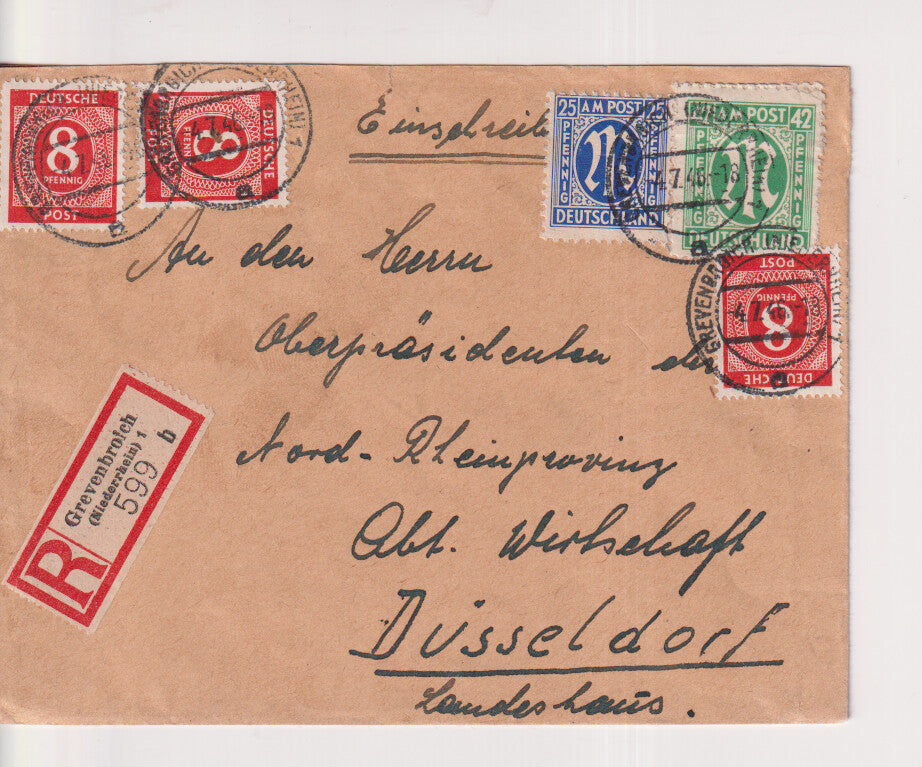 DEUTSCHE
8
PFENNIG
POST
DEUTSCHE
8
PFENNIG
Einschreiben
25 AM POST 25
PFENNIG
PFENNIG
DEUTSCHLAND
AM POST 42
PFENNIG
PFENNIG
DEUTSCHLAND
4.7.46.-18
a
POST
8
PFENNIG
DEUTSCHE
GREVENBROICH
4.7.46
a
An den Herrn
Oberpräsidenten der
Nord-Rheinprovinz
Abt. Wirtschaft
Düsseldorf
Landeshaus.
R
Grevenbroich
(Niederrhein) 1
599 b